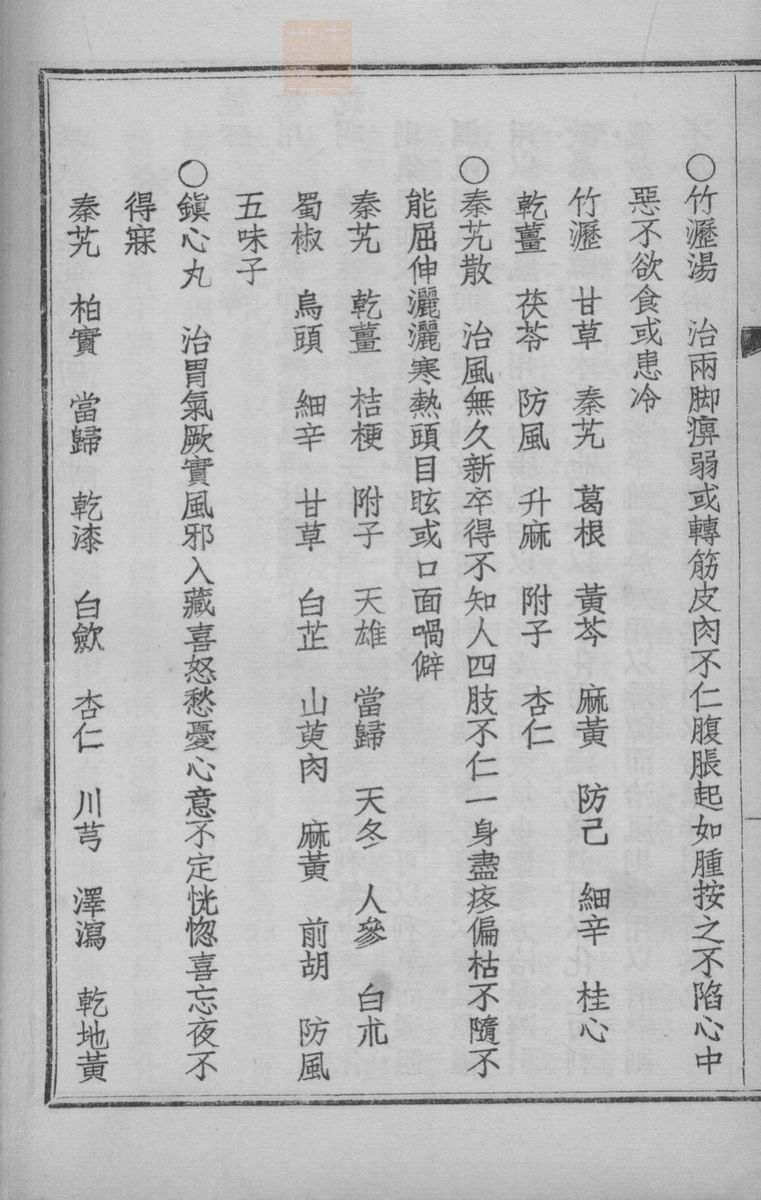 ○竹瀝湯　治兩脚痹弱或轉筋皮肉不仁腹脹起如腫按之不陷心中
惡不欲食或患冷
竹瀝　甘草　秦艽　葛根　黃芩　麻黃　防己　細辛　桂心
乾薑　茯苓　防風　升麻　附子　杏仁
○秦艽散　治風無久新卒得不知人四肢不仁一身盡疼偏枯不隨不
能屈伸灑灑寒熱頭目眩或口面喎僻
秦艽　乾薑　桔梗　附子　天雄　當歸　天冬　人參　白朮
蜀椒　烏頭　細辛　甘草　白芷　山萸肉　麻黃　前胡　防風
五味子
○鎭心丸　治胃氣厥實風邪入藏喜怒愁憂心意不定恍惚喜忘夜不
得寐
秦艽　柏實　當歸　乾漆　白歛　杏仁　川芎　澤瀉　乾地黃